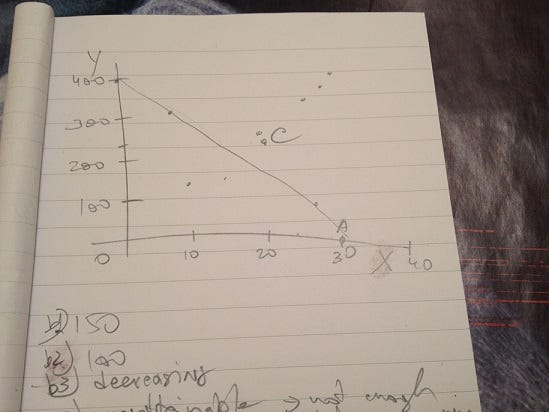 Y
400
300
C
200
100
A
0 10 20 30 X 40
b1) 150
b2) 100
b3) decreasing
not enough